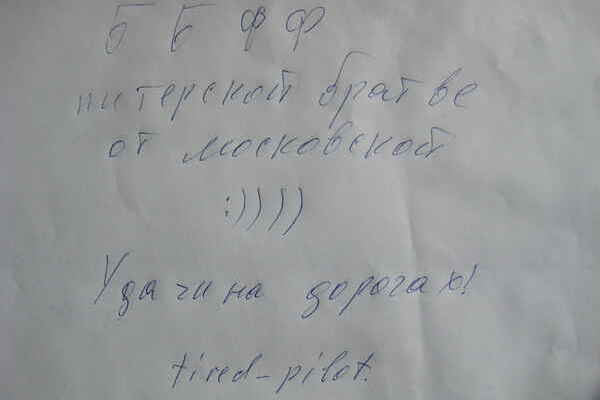 Б Б Ф Ф
питерской братве
от московской
:))))
Удачи на дорогах!
tired-pilot.